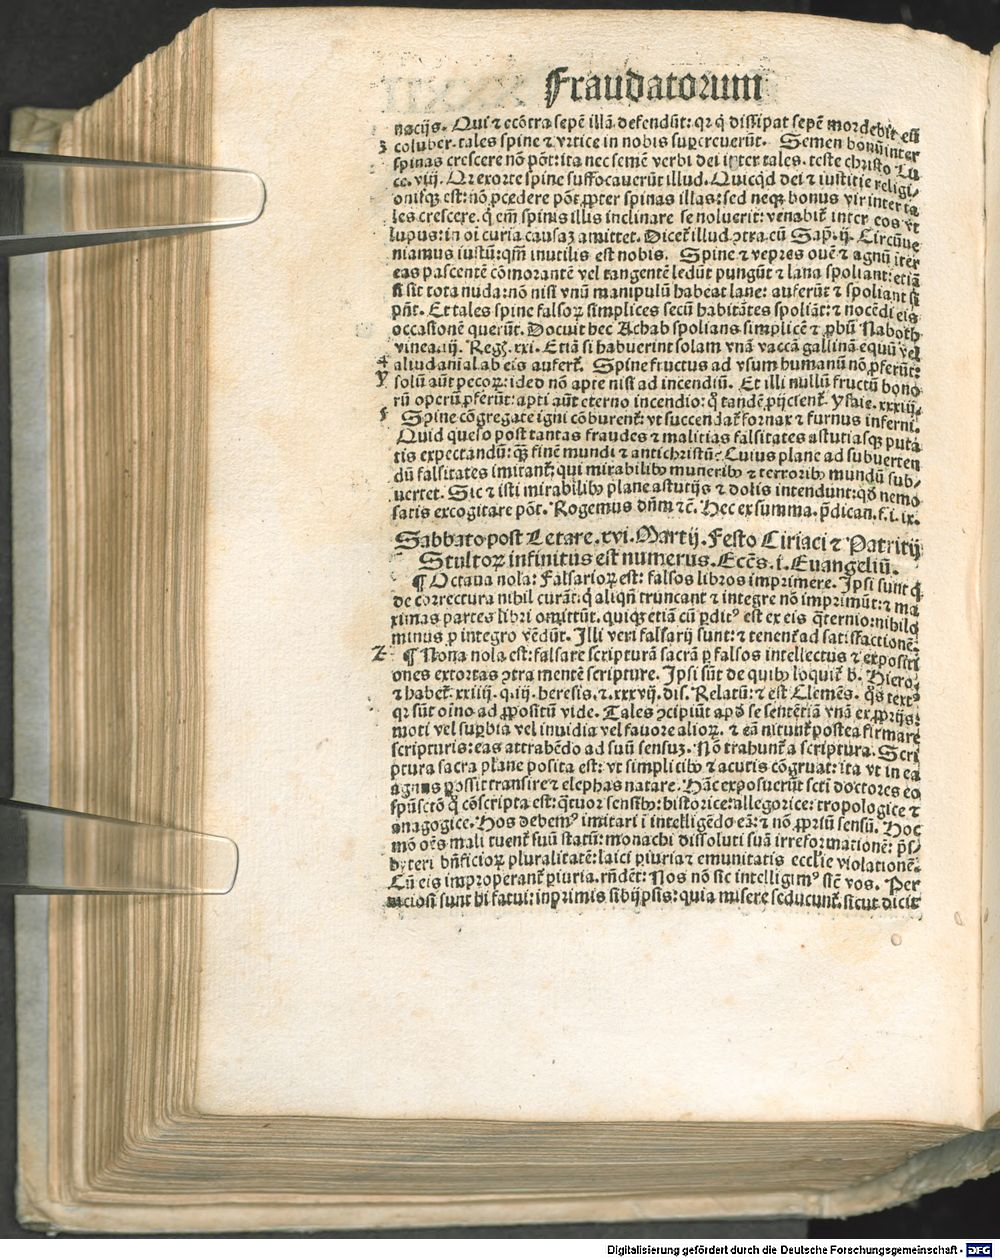 Fraudatorum
nacijs. Qui ⁊ ecōtra sepē illā defendūt: qꝛ q̇ dissipat sepē mordebit eū
3 coluber. tales spine ⁊ vrtice in nobis supercreuerūt. Semen bonū inter
spinas crescere nō pōt: ita nec semē verbi dei inter tales. teste christo Lu
ce. viij. Qꝛ exorte spine suffocauerūt illud. Quicqd dei ⁊ iustitie religi
onisqꝫ est: nō ꝓcedere pōt ꝓpter spinas illas: sed neqꝫ bonus vir inter ta
les crescere. q̇ cm̄ spinis illis inclinare se noluerit: venabit̄ inter eos vt
lupus: in oi curia causaꝫ amittet. Dicet̄ illud ↄtra eū Sap̄. ij. Circūue
niamus iustū: qm̄ inutilis est nobis. Spine ⁊ vepres ouē ⁊ agnū iter
eas pascentē cōmorantē vel tangentē ledūt pungūt ⁊ lana spoliant: etiā
si sit tota nuda: nō nisi vnū manipulū habeat lane: auferūt ⁊ spoliant si
pn̄t. Et tales spine falsoꝝ simplices secū habitātes spoliāt: ⁊ nocēdi eis
occasionē querūt. Docuit hec Achab spolians simplicē ⁊ ꝓbū Naboth
vinea. iij. Reg. xxi. Etiā si habuerint solam vnā vaccā gallinā equū vel
4 aliud anial. ab eis aufert̄. Spine fructus ad vsum humanū nō ꝓferūt:
y solū aūt pecoꝝ: ideo nō apte nisi ad incendiū. Et illi nullū fructū bono
rū operū ꝓferūt: apti aūt eterno incendio: q̇ tandē ꝓijcient̄. Ysaie. xxxiij.
5 Spine cōgregate igni cōburent̄: vt succendat̄ fornax ⁊ furnus inferni.
Quid queso post tantas fraudes ⁊ malitias falsitates astutiasqꝫ puta
tis expectandū: qꝫ finē mundi ⁊ antichristū? Cuius plane ad subuerten
dū falsitates imitant̄: qui mirabilibꝫ muneribꝫ ⁊ terroribꝫ mundū sub⸗
uertet. Sic ⁊ isti mirabilibꝫ plane astutijs ⁊ dolis intendunt: qd̄ nemo
satis excogitare pōt. Rogemus dn̄m ⁊c̄. Hec ex summa. p̄dican. f. i. ix.
Sabbato post Letare. xvi. Martij. Festo Ciriaci ⁊ Patritij
Stultoꝝ infinitus est numerus. Eccēs. i. Euangeliū.
¶ Octaua nola: Falsarioꝝ est: falsos libros imprimere. Ipsi sunt q̇
de correctura nihil curāt: q̇ aliqn̄ truncant ⁊ integre nō imprimūt: ⁊ ma
ximas partes libri omittūt. quiqꝫ etiā cū ꝑditꝰ est ex eis q̄ternio: nihilo
minus ꝑ integro vēdūt. Illi veri falsarij sunt: ⁊ tenent̄ ad satisfactionē.
Z ¶ Nona nola est: falsare scripturā sacrā ꝑ falsos intellectus ⁊ expositi
ones extortas ↄtra mentē scripture. Ipsi sūt de quibꝫ loquit̄ b. Hiero.
⁊ habet̄. xxiiij. q. iij. heresis. ⁊. xxxvij. dis. Relatū: ⁊ est Clemēs. qs textꝰ
qꝛ sūt oino ad ꝓpositū vide. Tales ↄcipiūt apd̄ se sentētiā vnā ex ꝓprijs:
moti vel suꝑbia vel inuidia vel fauore alioꝝ. ⁊ eā nitunt̄ postea firmare
scripturis: eas attrahēdo ad suū sensuꝫ. Nō trahunt̄ a scriptura. Scri
ptura sacra plane posita est: vt simplicibꝫ ⁊ acutis cōgruat: ita vt in ea
agnus possit transire ⁊ elephas natare. Hāc exposuerūt scti doctores eo
sp̄uscto q̇ cōscripta est: q̄tuor sensibꝫ: historice: allegorice: tropologice ⁊
anagogice. Hos debemꝰ imitari ī intelligēdo eā: ⁊ nō ꝓpriū sensū. Hoc
mō oēs mali tuent̄ suū statū: monachi dissoluti suā irreformationē: p̄s⸗
byteri bn̄ficioꝝ pluralitatē: laici ꝑiuria ⁊ emunitatis ecclie violationē.
Cū eis improperant̄ ꝑiuria. rn̄dēt: Nos nō sic intelligimꝰ sic̄ vos. Per
niciosi sunt hi fatui: inprimis sibijpsis: quia misere seducunt̄. sicut dicit
Digitalisierung gefördert durch die Deutsche Forschungsgemeinschaft - DFG